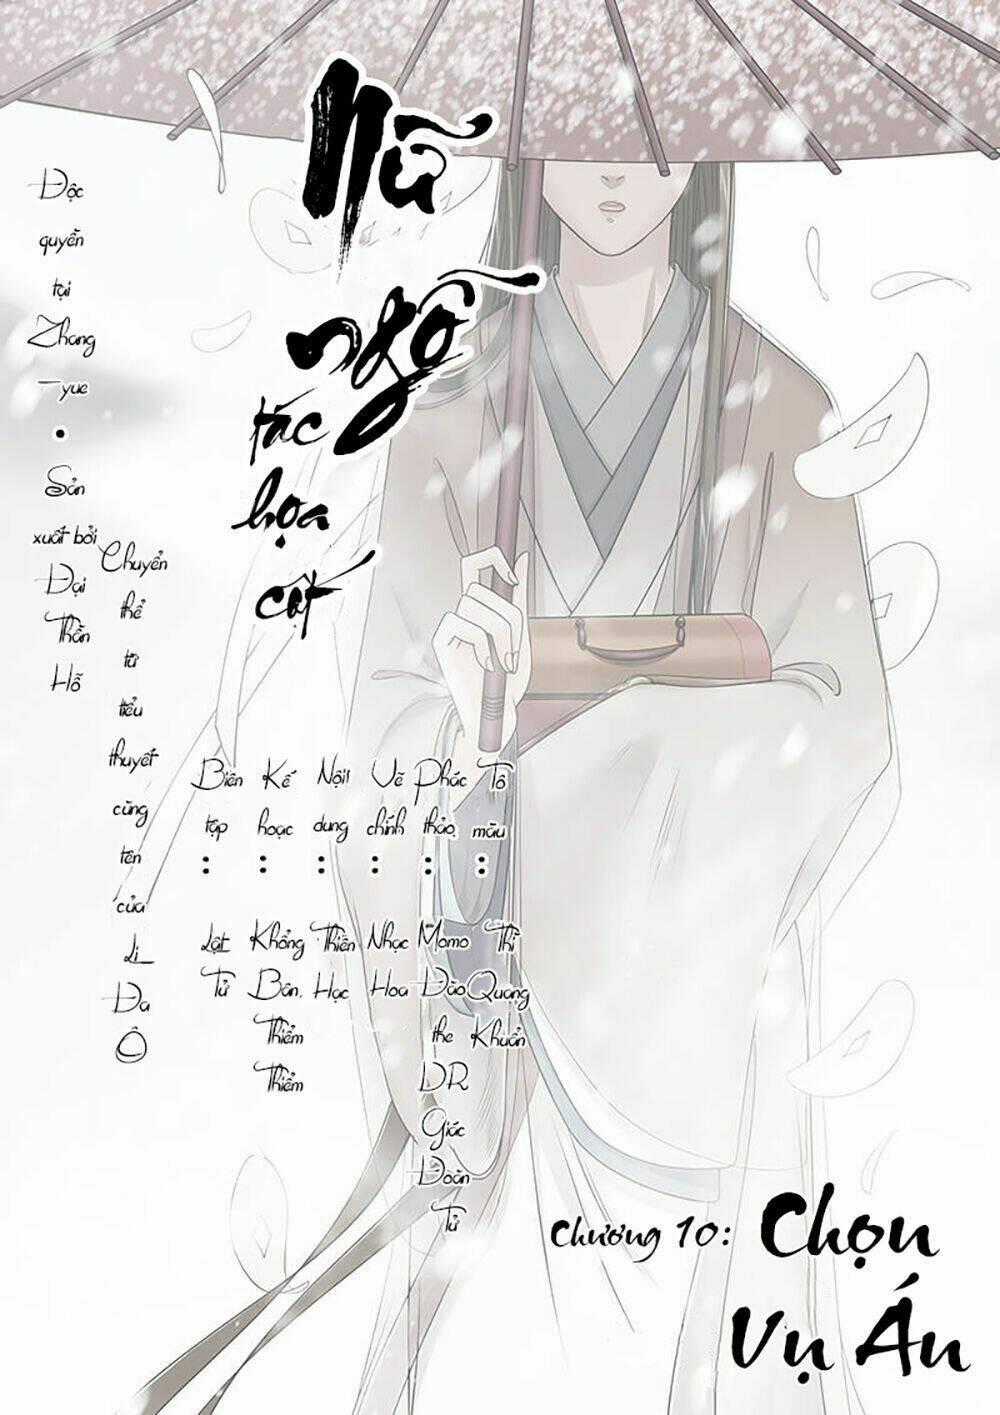 Nữ
ngỗ
tác
họa
cốt
Độc
quyền
tại
Zhang
-yue
•
Sản
xuất bởi
Đại
Thần
Hỗ
Chuyển
thể
từ
tiểu
thuyết
cùng
tên
của
Li
Đa
Ô
Biên
tập
:
Lật
Tử
Kế
hoạc
:
Khổng
Bân,
Thiểm
Thiểm
Nội
dung
:
Thiền
Hạc
Vẽ
chính
:
Nhạc
Hoa
Phác
thảo
:
Momo
Đào
the
DR
Giác
Đoàn
Tử
Tô
màu
:
Thì
Quang
Khuẩn
Chương 10: Chọn
Vụ Án